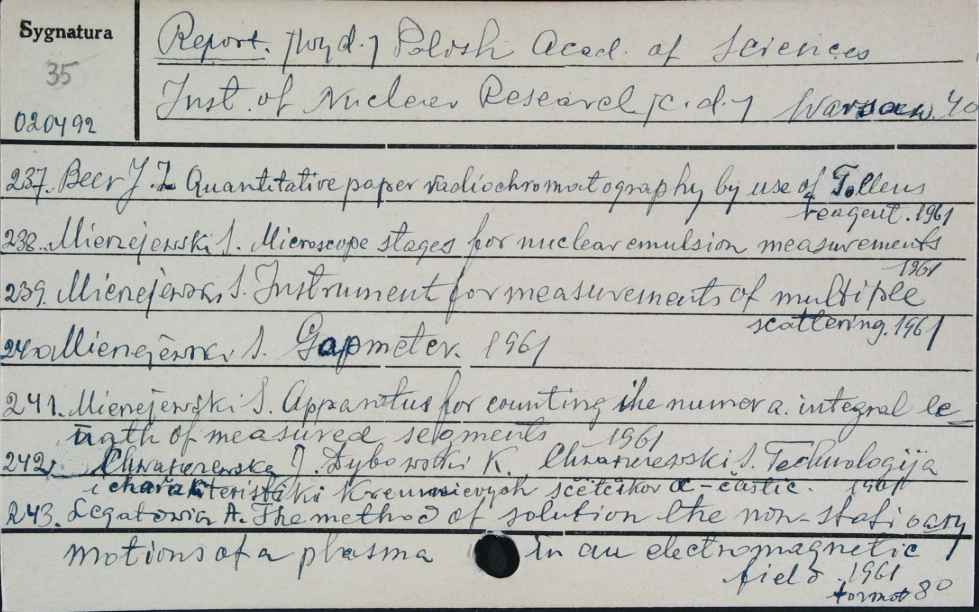 Sygnatura
35
020492
Report. [wyd.] Polish Acad. of Sciences
Inst. of Nuclear Research [c.d.] Warsaw.
237. Beer J. Z. Quantitative paper radiochromatography by use of Tollens
reagent. 1961
238. Mierzejewski S. Microscope stages for nuclear emulsion measurements
1961
239. S. Instrument for measurements of multiple
scattering. 1961
240. S. Gapmeter. 1961
241. Mierzejewski S. Apparatus for counting the numer a. integral le-
ngth of measured segments 1961
242. J. Dybowski K. S. Technologija
i Kremnievych sčetčikov α-častic. 1961
243. A. The method of solution the non-stationary
motions of a plasma in an electromagnetic
field. 1961
format 8°